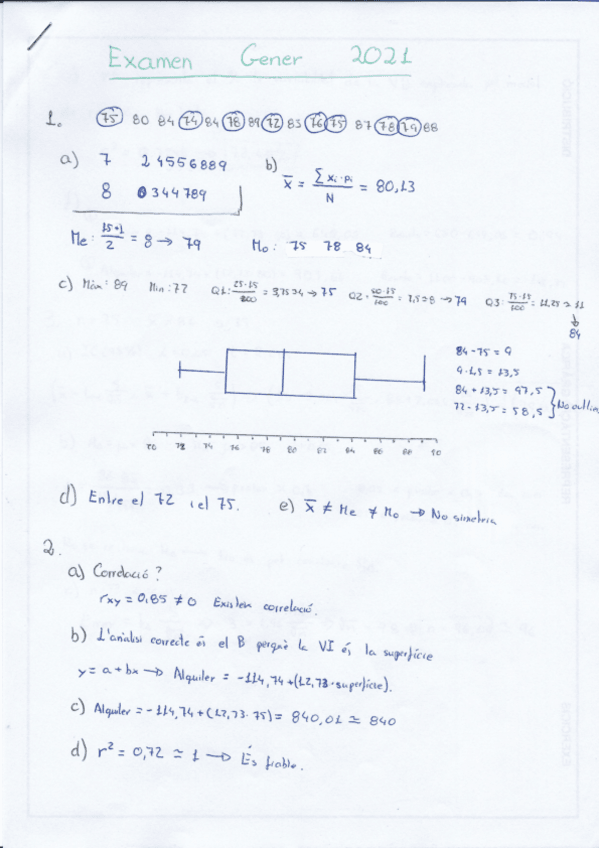 Examen Gener 2021
1. 75 80 84 74 84 78 89 72 85 76 75 87 78 79 88
a) 7 24556889
8 0344789
b) x̄ = Σ xi·pi / N = 80,13
Me: 15+1 / 2 = 8 → 79
Mo: 75 78 84
c) Màx: 89 Min: 72 Q1: 25·15 / 100 = 3,75 ≃ 4 → 75 Q2 = 50·15 / 100 = 7,5 ≃ 8 → 79 Q3: 75·15 / 100 = 11,25 ≃ 11
↓
84
84-75 = 9
9·1,5 = 13,5
84 + 13,5 = 97,5
72-13,5 = 58,5
No outlie
70 72 74 76 78 80 82 84 86 88 90
d) Entre el 72 i el 75.
e) x̄ ≠ Me ≠ Mo → No simetria
2.
a) Correlació?
rxy = 0,85 ≠ 0 Existeix correlació.
b) L'anàlisi correcte és el B perquè la VI és la superfície
y = a + bx → Alquiler = -114,74 + (12,73 · superfície).
c) Alquiler = -114,74 + (12,73 · 75) = 840,01 ≃ 840
d) r² = 0,72 ≃ 1 → És fiable.